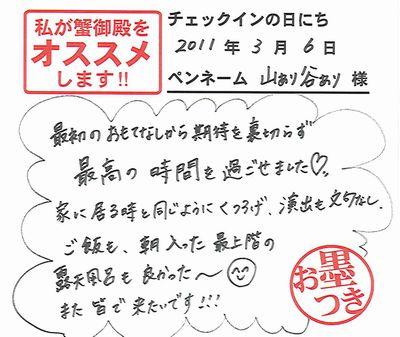 私が蟹御殿を
オススメ
します!!
チェックインの日にち
2011年3月6日
ペンネーム 山あり谷あり 様
最初のおもてなしから期待を裏切らず
最高の時間を過ごせました♡。
家に居る時と同じようにくつろげ、演出も文句なし。
ご飯も、朝入った最上階の
露天風呂も良かった〜
また皆で来たいです!!!
お墨つき